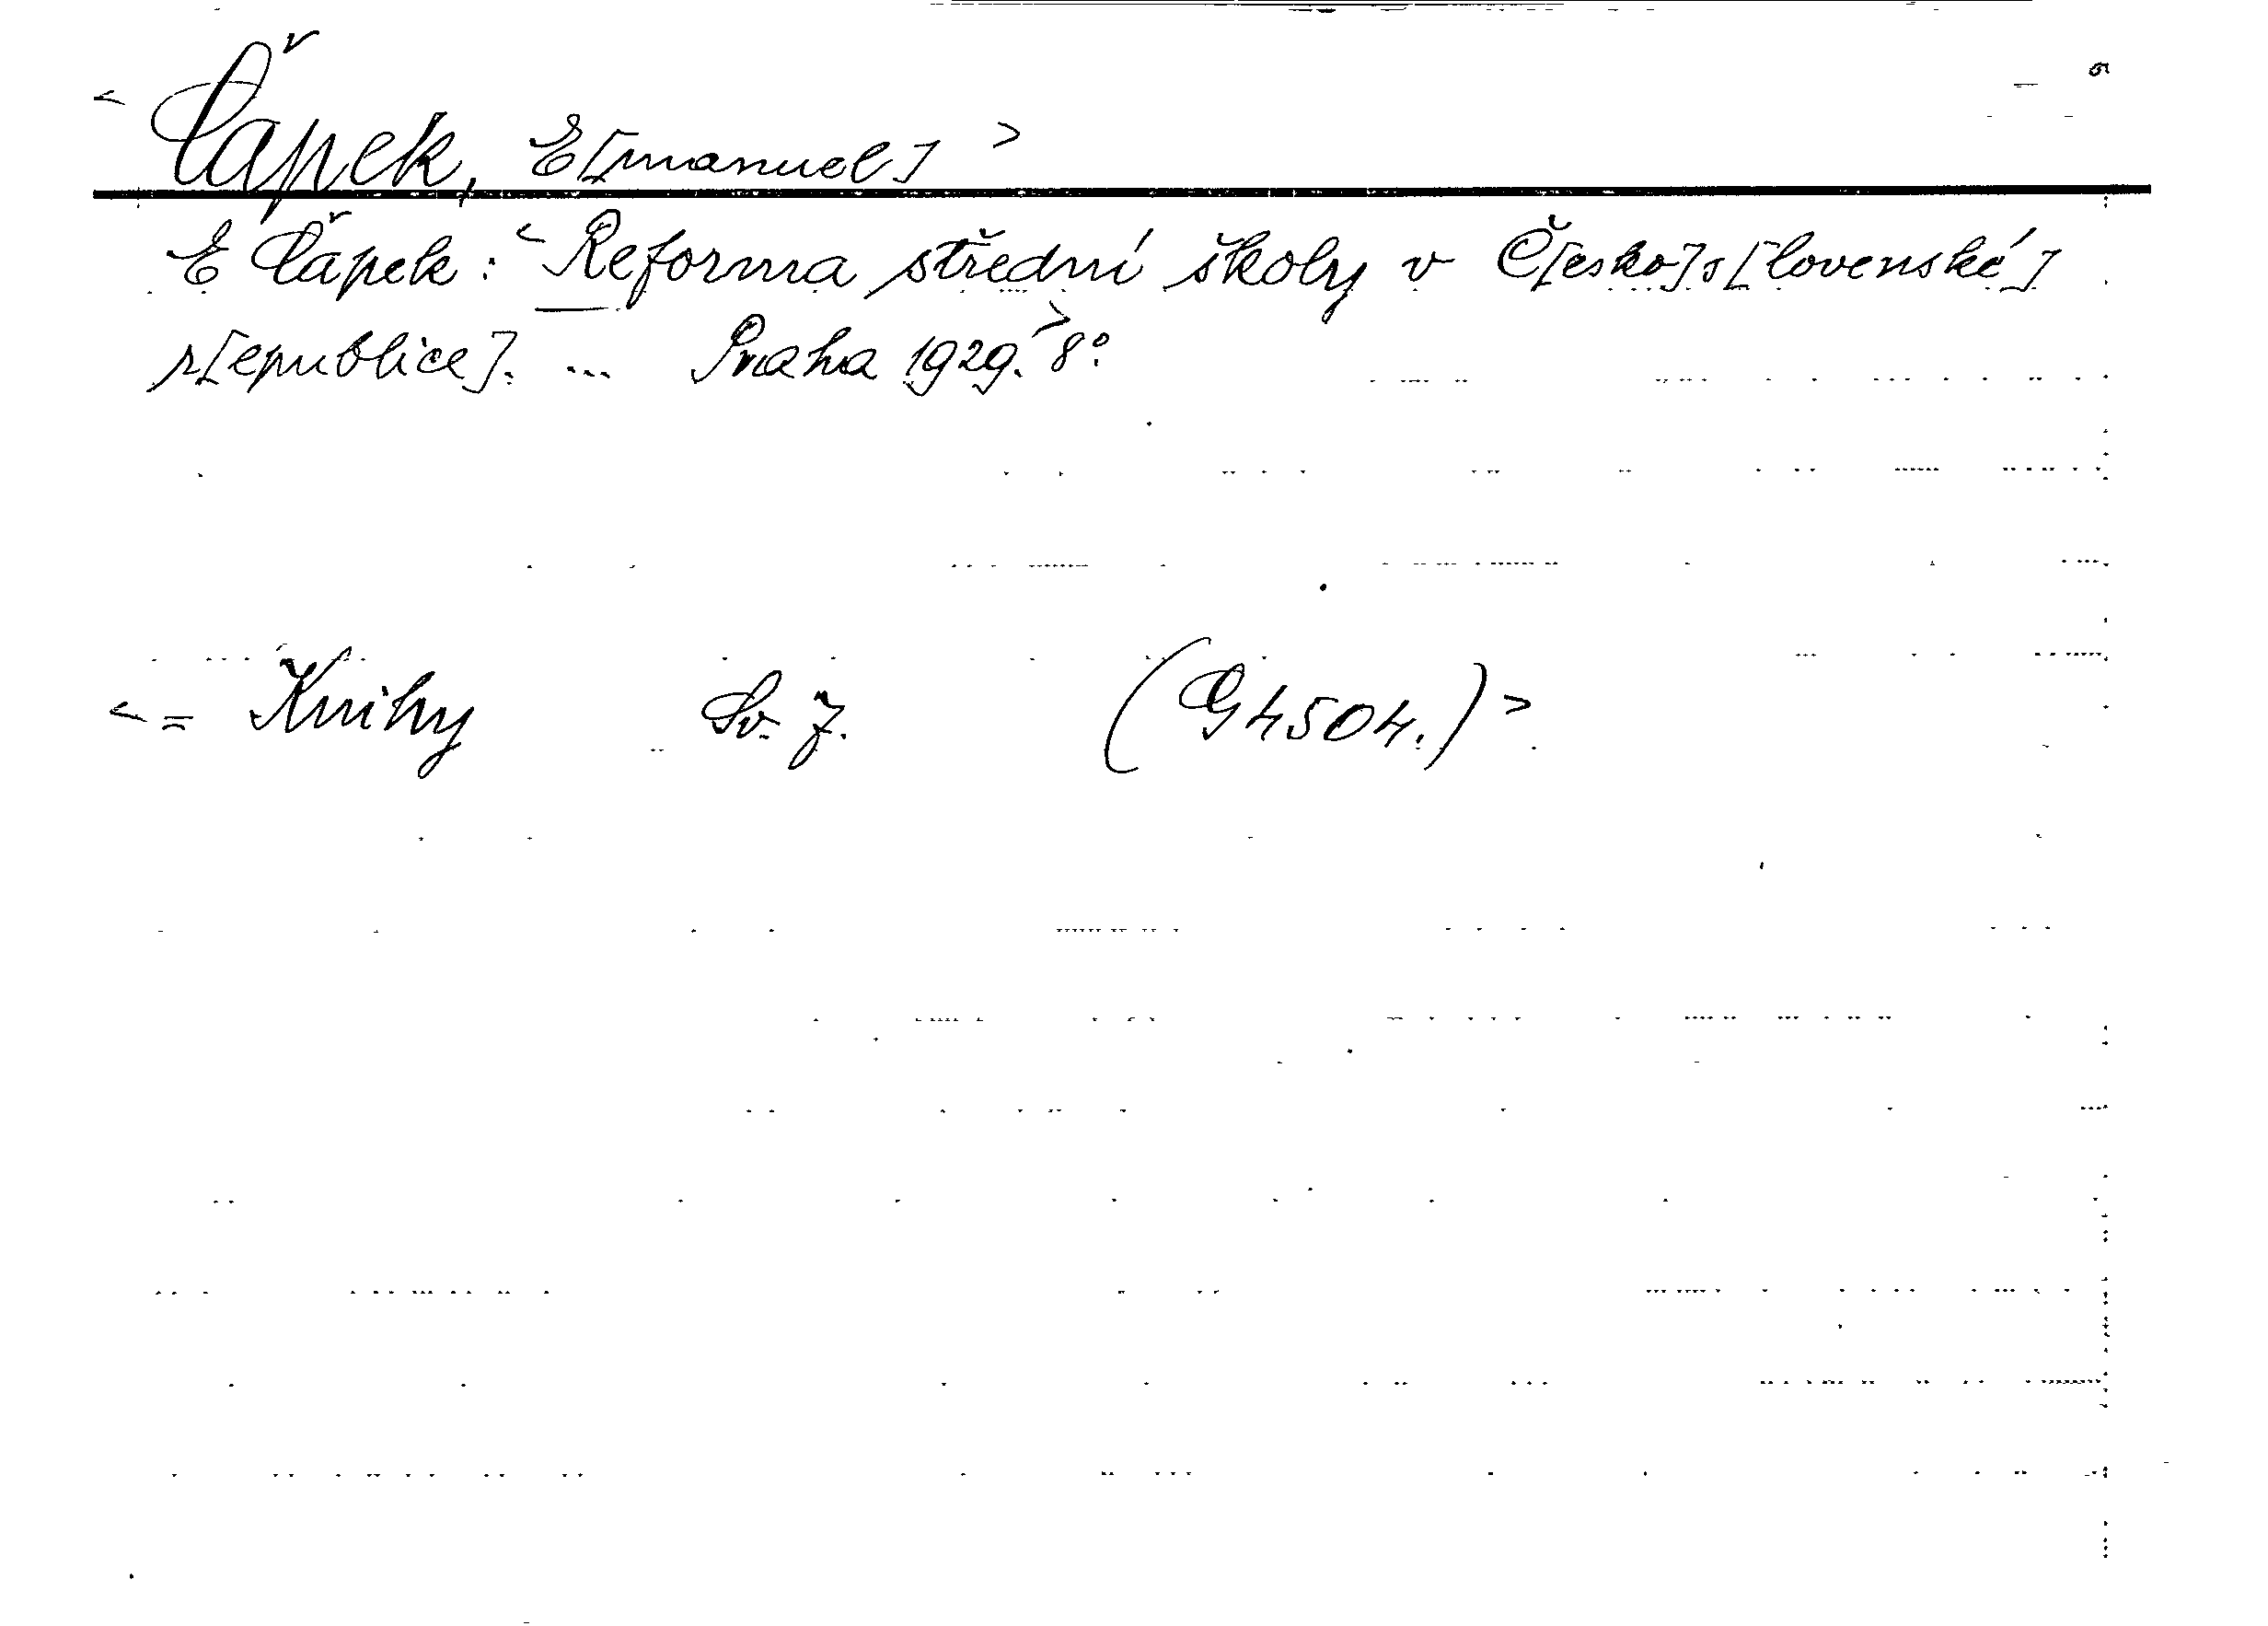 < Čapek, E[manuel] >
E Čapek: < Reforma střední školy v Č[esko]s[lovenské]
r[epublice]. ... Praha 1929. > 8°.
< = Knihy Sv. 7. (G4504.) >